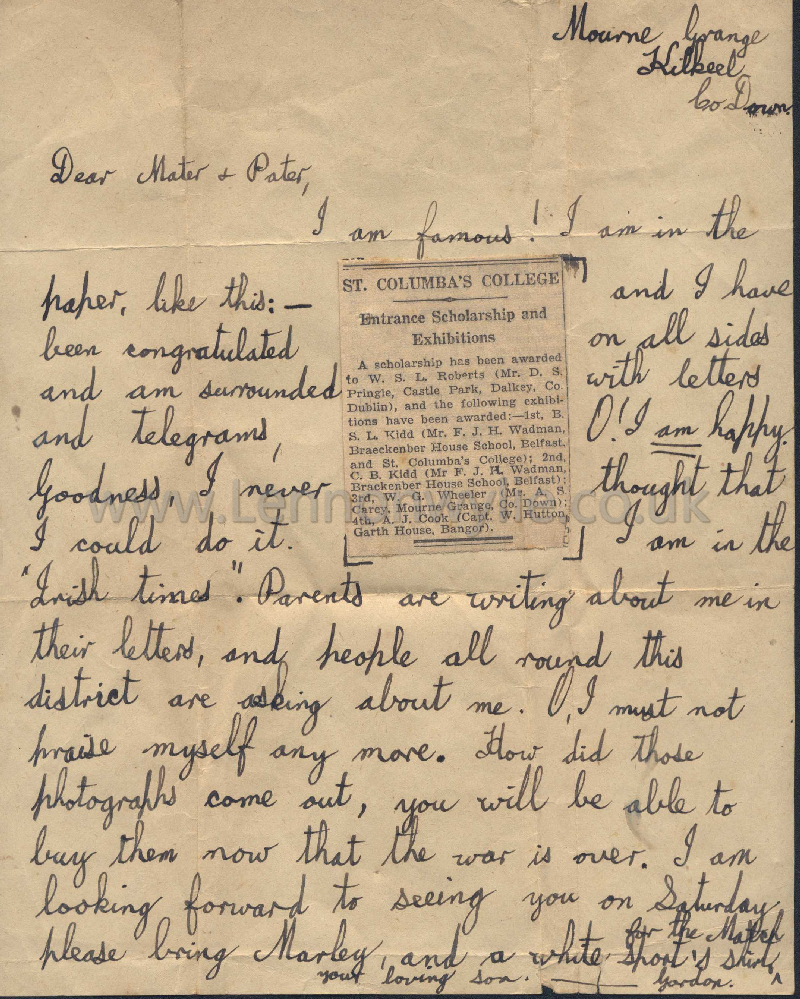 Mourne Grange
Kilkeel
Co. Down.
Dear Mater & Pater,
I am famous! I am in the
paper, like this:— and I have
been congratulated on all sides
and am surrounded with letters
and telegrams, O! I am happy.
Goodness, I never thought that
I could do it. I am in the
ST. COLUMBA'S COLLEGE
Entrance Scholarship and
Exhibitions
A scholarship has been awarded
to W. S. L. Roberts (Mr. D. S.
Pringle, Castle Park, Dalkey, Co.
Dublin), and the following exhibi-
tions have been awarded:—1st, B.
S. L. Kidd (Mr. F. J. H. Wadman,
Braeckenber House School, Belfast,
and St. Columba's College); 2nd,
C. B. Kidd (Mr F. J. H. Wadman,
Brackenber House School, Belfast);
3rd, W. G. Wheeler (Mr. A. S
Carey, Mourne Grange, Co. Down);
4th, A. J. Cook (Capt. W. Hutton,
Garth House, Bangor).
"Irish times". Parents are writing about me in
their letters, and people all round this
district are asking about me. O, I must not
praise myself any more. How did those
photographs come out, you will be able to
buy them now that the war is over. I am
looking forward to seeing you on Saturday
for the Match
please bring Marley, and a white sport's shirt,
your loving son. Gordon.